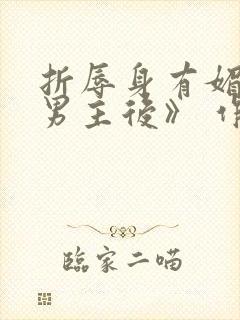 折辱身有媚
男主後》 作
臨家二喵